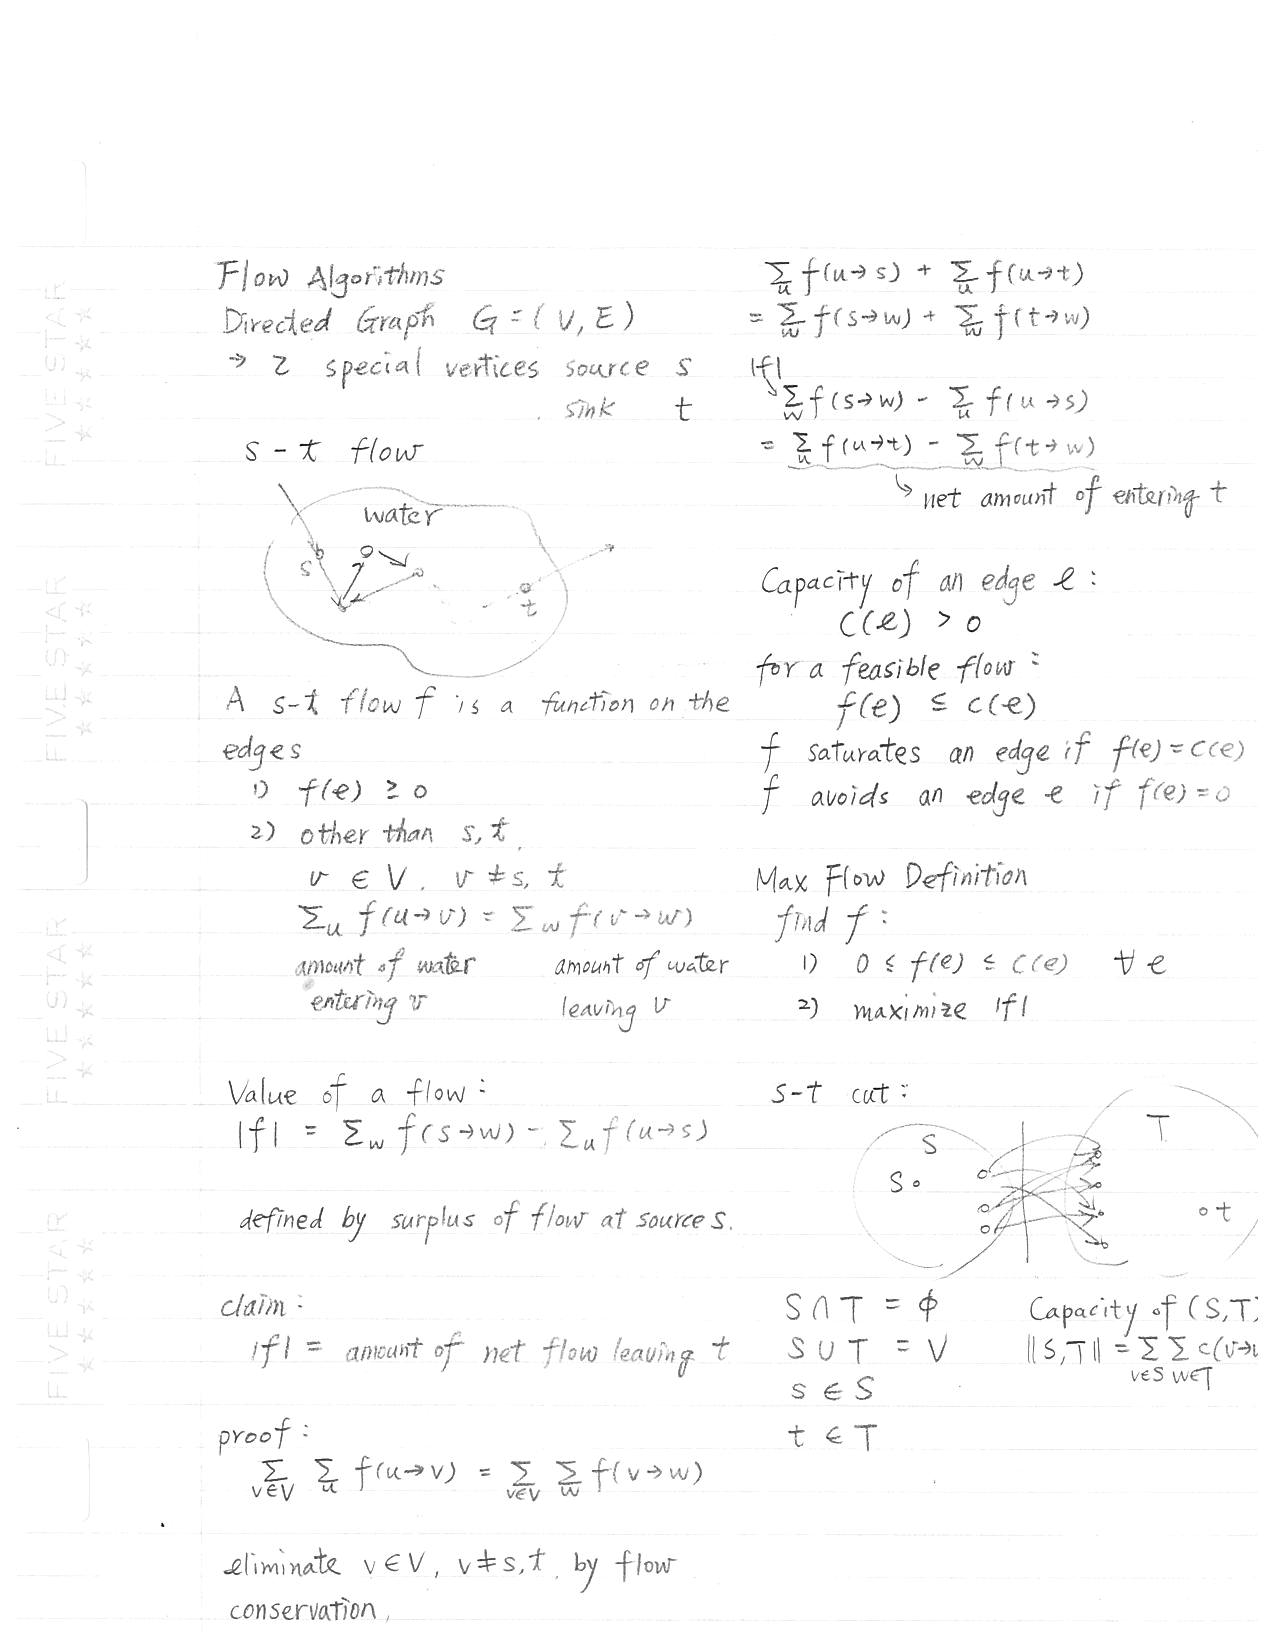 Flow Algorithms
Directed Graph G = (V, E)
→ 2 special vertices source s
sink t
s - t flow
water
s
t
A s-t flow f is a function on the
edges
1) f(e) ≥ 0
2) other than s, t
v ∈ V, v ≠ s, t
Σu f(u→v) = Σw f(v→w)
amount of water amount of water
entering v leaving v
Value of a flow:
|f| = Σw f(s→w) - Σu f(u→s)
defined by surplus of flow at source s.
claim:
|f| = amount of net flow leaving t
proof:
Σ Σ f(u→v) = Σ Σ f(v→w)
v∈V u v∈V w
eliminate v∈V, v≠s,t, by flow
conservation,
Σ f(u→s) + Σ f(u→t)
u u
= Σ f(s→w) + Σ f(t→w)
w w
|f|
Σ f(s→w) - Σ f(u→s)
w u
= Σ f(u→t) - Σ f(t→w)
u w
↳ net amount of entering t
Capacity of an edge e:
c(e) > 0
for a feasible flow:
f(e) ≤ c(e)
f saturates an edge if f(e) = c(e)
f avoids an edge e if f(e) = 0
Max Flow Definition
find f:
1) 0 ≤ f(e) ≤ c(e) ∀ e
2) maximize |f|
s-t cut:
S T
s t
S ∩ T = ϕ Capacity of (S,T)
S ∪ T = V ||S,T|| = Σ Σ c(v→
v∈S w∈T
s ∈ S
t ∈ T
FIVE STAR
★★★★
FIVE STAR
★★★★
FIVE STAR
★★★★
FIVE STAR
★★★★